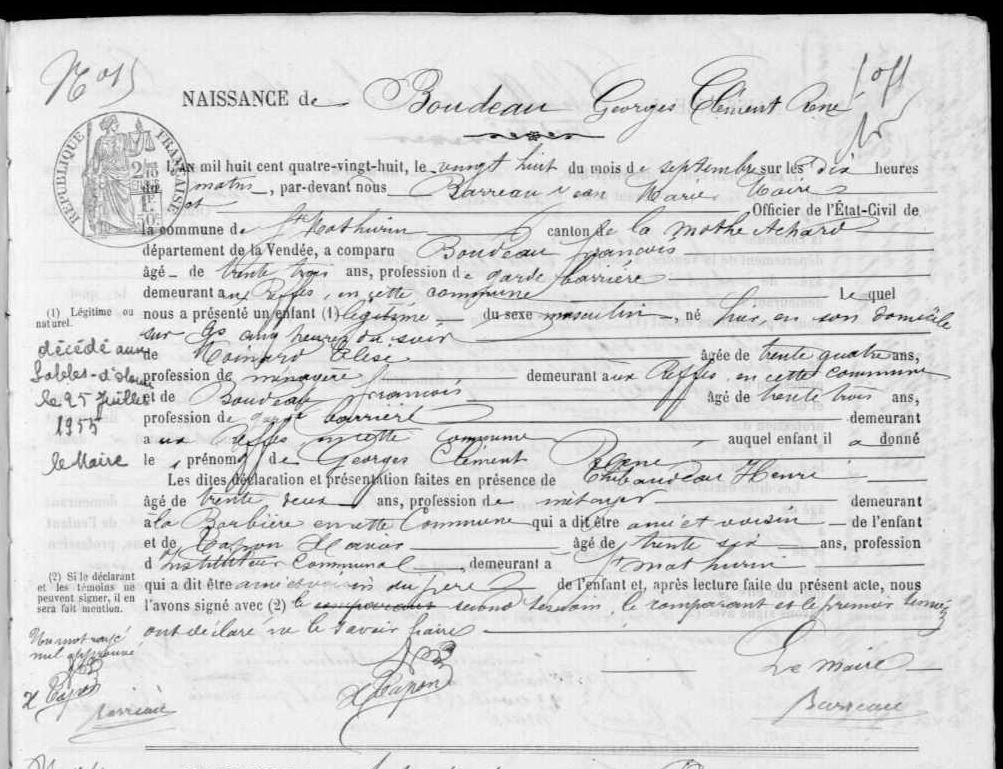 NAISSANCE de Boudeau Georges Clément René
RÉPUBLIQUE FRANÇAISE
L'AN mil huit cent quatre-vingt-huit, le vingt huit du mois de septembre sur les dix heures
du matin, par-devant nous Barreau Jean Marie Maire
et Officier de l'État-Civil de
la commune de St Mathurin canton de la Mothe Achard
département de la Vendée, a comparu Boudeau françois
âgé de trente trois ans, profession de garde barrière
demeurant aux Reffes, en cette commune Le quel
(1) Légitime ou naturel.
nous a présenté un enfant (1) légitime du sexe masculin, né hier, en son domicile
sur les cinq heures du soir
de Élise âgée de trente quatre ans,
profession de ménagère demeurant aux Reffes en cette commune
et de Boudeau françois âgé de trente trois ans,
profession de garde barrière demeurant
aux Reffes en cette commune auquel enfant il a donné
le s prénoms de Georges Clément René
décédé aux
Sables-d'Olonne
le 25 Juillet
1955
le Maire
Les dites déclaration et présentation faites en présence de Thibaudeau Henri
âgé de trente deux ans, profession de métayer demeurant
à la Barbière en cette Commune qui a dit être ami et voisin de l'enfant
et de Xavier âgé de trente six ans, profession
d'Instituteur Communal, demeurant à St Mathurin
(2) Si le déclarant
et les témoins ne
peuvent signer, il en
sera fait mention.
qui a dit être ami et voisin du père de l'enfant et, après lecture faite du présent acte, nous
l'avons signé avec (2) le comparant second témoin, le comparant et le premier témoin
ont déclaré ne le savoir faire
Un mot rayé
nul approuvé
Le Maire
Barreau